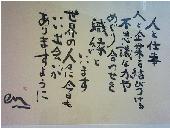 人と仕事
人と企業を結びつける
不思議な力や
めり合わせを
職縁と
いいます
世界の人々に今日も
いい出会いが
ありますように
en